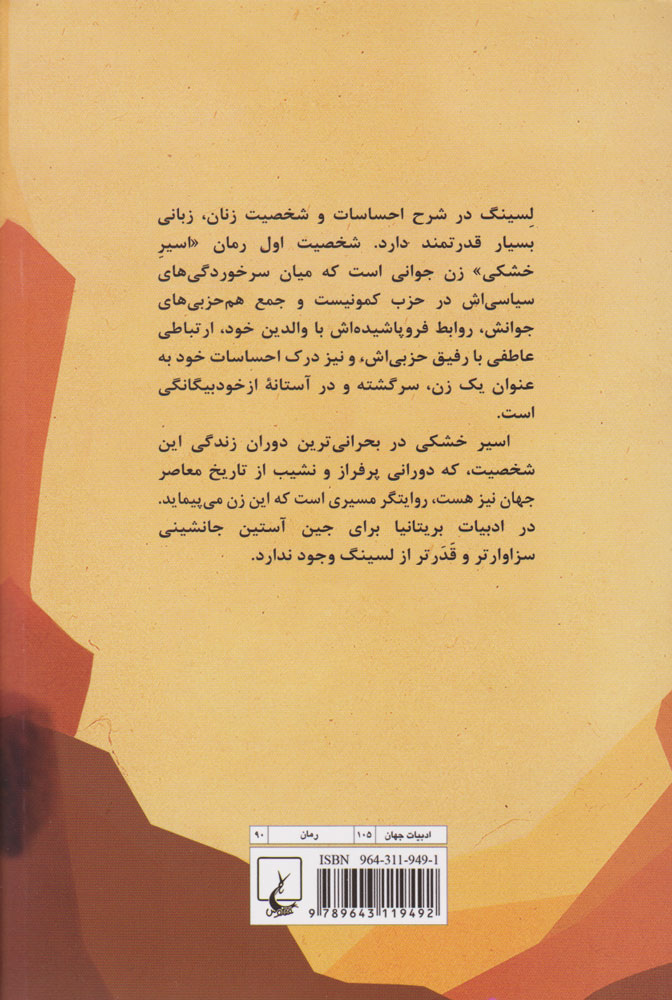 لِسینگ در شرح احساسات و شخصیت زنان، زبانی
بسیار قدرتمند دارد. شخصیت اول رمان «اسیرِ
خشکی» زن جوانی است که میان سرخوردگی‌های
سیاسی‌اش در حزب کمونیست و جمع هم‌حزبی‌های
جوانش، روابط فروپاشیده‌اش با والدین خود، ارتباطی
عاطفی با رفیق حزبی‌اش، و نیز درک احساسات خود به
عنوان یک زن، سرگشته و در آستانهٔ ازخودبیگانگی
است.
اسیر خشکی در بحرانی‌ترین دوران زندگی این
شخصیت، که دورانی پرفراز و نشیب از تاریخ معاصر
جهان نیز هست، روایتگر مسیری است که این زن می‌پیماید.
در ادبیات بریتانیا برای جین آستین جانشینی
سزاوارتر و قَدَرتر از لسینگ وجود ندارد.
ادبیات جهان ۱۰۵ رمان ۹۰
ISBN 964-311-949-1
9 789643 119492
ققنوس